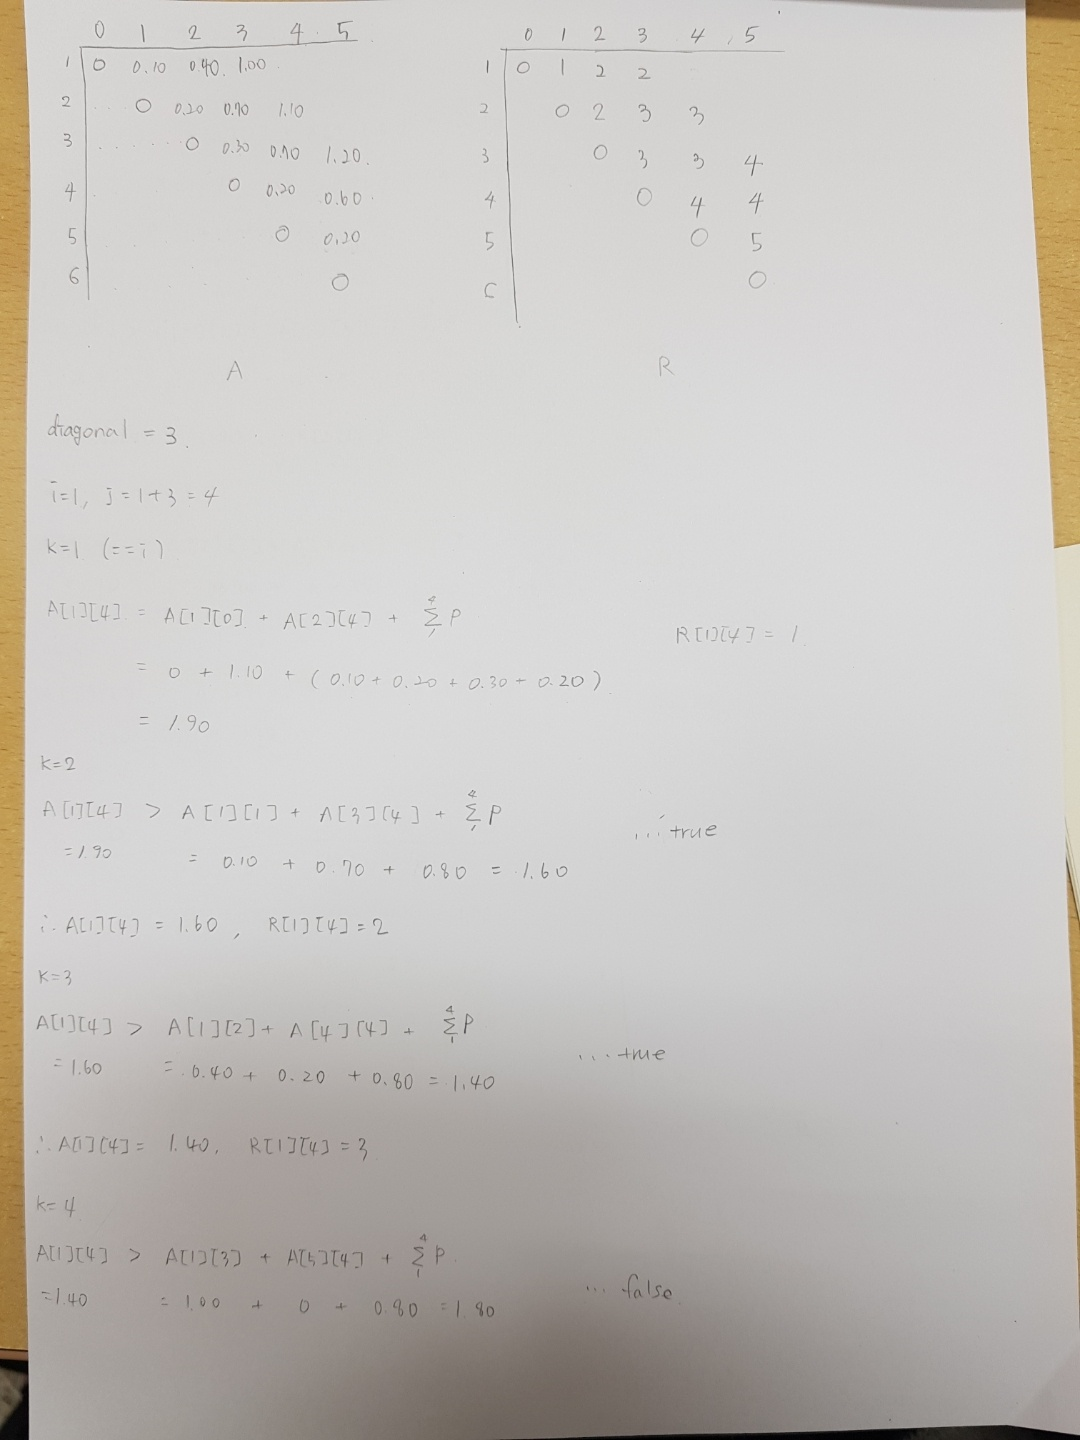 0 1 2 3 4 5
1 0 0.10 0.40 1.00
2 0 0.20 0.70 1.10
3 0 0.30 0.70 1.20
4 0 0.20 0.60
5 0 0.20
6 0
A
0 1 2 3 4 5
1 0 1 2 2
2 0 2 3 3
3 0 3 3 4
4 0 4 4
5 0 5
0
R
diagonal = 3.
i=1, j=1+3=4
k=1 (==i)
A[1][4] = A[1][0] + A[2][4] + 4Σ1 P
R[1][4] = 1
= 0 + 1.10 + (0.10 + 0.20 + 0.30 + 0.20)
= 1.90
k=2
A[1][4] > A[1][1] + A[3][4] + 4Σ1 P ... true
=1.90 = 0.10 + 0.70 + 0.80 = 1.60
∴ A[1][4] = 1.60, R[1][4] = 2
k=3
A[1][4] > A[1][2] + A[4][4] + 4Σ1 P ... true
=1.60 = 0.40 + 0.20 + 0.80 = 1.40
∴ A[1][4] = 1.40, R[1][4] = 3
k=4
A[1][4] > A[1][3] + A[5][4] + 4Σ1 P ... false
=1.40 = 1.00 + 0 + 0.80 = 1.80